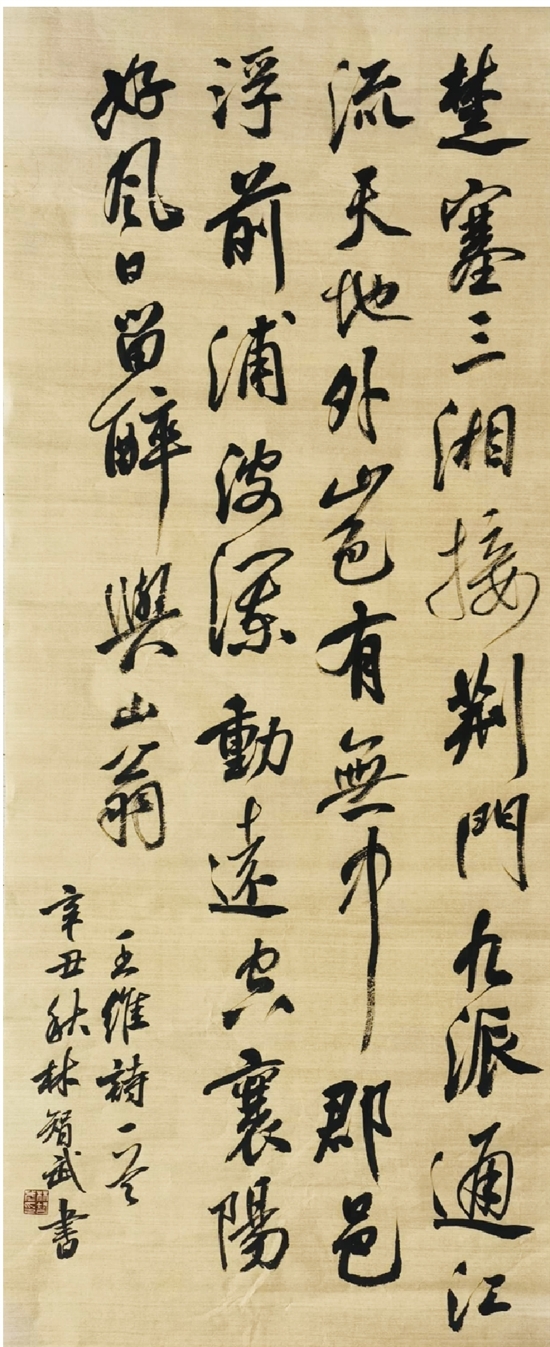 楚塞三湘接荆門九派通江
流天地外山色有無中郡邑
浮前浦波瀾動遠空襄陽
好風日留醉與山翁
王維詩一首
辛丑秋林智武書